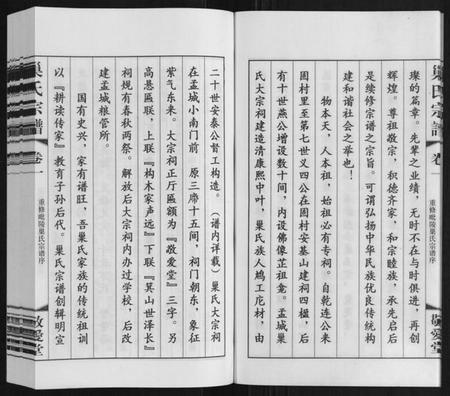 巢氏宗譜
卷一
重修毗陵巢氏宗谱序
敬愛堂
璨的篇章。先辈之业绩，无时不在与时俱进，再创
辉煌。尊祖敬宗，积德齐家，和宗睦族，承先启后
是续修宗谱之宗旨。可谓弘扬中华民族优良传统构
建和谐社会之举也！
物本天，人本祖，始祖必有专祠。自乾连公来
囷村里至第七世义四公在囷村安基山建祠四楹，后
有十世燕公增设数十间，内设佛像芷祖龛。孟城巢
氏大宗祠建造清康熙中叶，巢氏族人鸠工庀材，由
二十世安泰公督工构造。（谱内详载）巢氏大宗祠
在孟城小南门前，原三席十五间，祠门朝东，象征
紫气东来。大宗祠正厅匾额为『敬爱堂』三字。另
高悬匾联，上联『构木家声远』下联『箕山世泽长』
祠规有春秋两祭。解放后大宗祠内办过学校，后改
建孟城粮管所。
国有史兴，家有谱旺，吾巢氏家族的传统祖训
以『耕读传家』教育子孙后代。巢氏宗谱创辑明宣
巢氏宗譜
卷一
重修毗陵巢氏宗谱序
敬愛堂